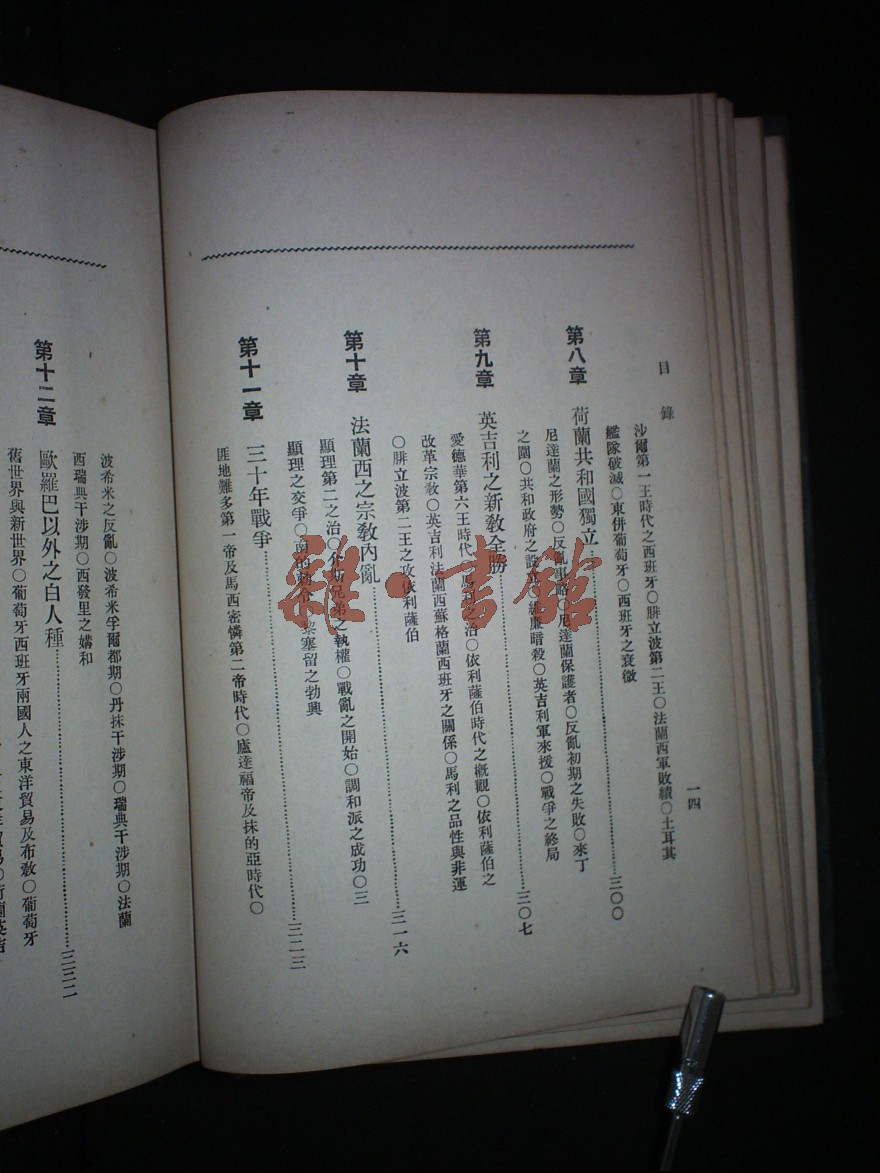 目錄
一四
沙爾第一王時代之西班牙○腓立波第二王○法蘭西軍敗績○土耳其
艦隊破滅○東併葡萄牙○西班牙之衰微
第八章 荷蘭共和國獨立……三〇〇
尼達蘭之形勢○反亂事略○尼達蘭保護者○反亂初期之失敗○來丁
之圍○共和政府之設 廉暗殺○英吉利軍來援○戰爭之終局
第九章 英吉利之新敎全勝……三〇七
愛德華第六王時代○馬利之治○依利薩伯時代之概觀○依利薩伯之
改革宗敎○英吉利法蘭西蘇格蘭西班牙之關係○馬利之品性與非運
○腓立波第二王之攻依利薩伯
第十章 法蘭西之宗敎內亂……三一六
顯理第二之治○介斯兄弟之執權○戰亂之開始○調和派之成功○三
顯理之交爭○南的勅令○黎塞留之勃興
第十一章 三十年戰爭……三二三
匪地難多第一帝及馬西密憐第二帝時代○廬達福帝及抹的亞時代○
波希米之反亂○波希米孚爾都期○丹抹干涉期○瑞典干涉期○法蘭
西瑞典干涉期○西發里之媾和
第十二章 歐羅巴以外之白人種……三三二
舊世界與新世界○葡萄牙西班牙兩國人之東洋貿易及布敎○葡萄牙
雜·書館